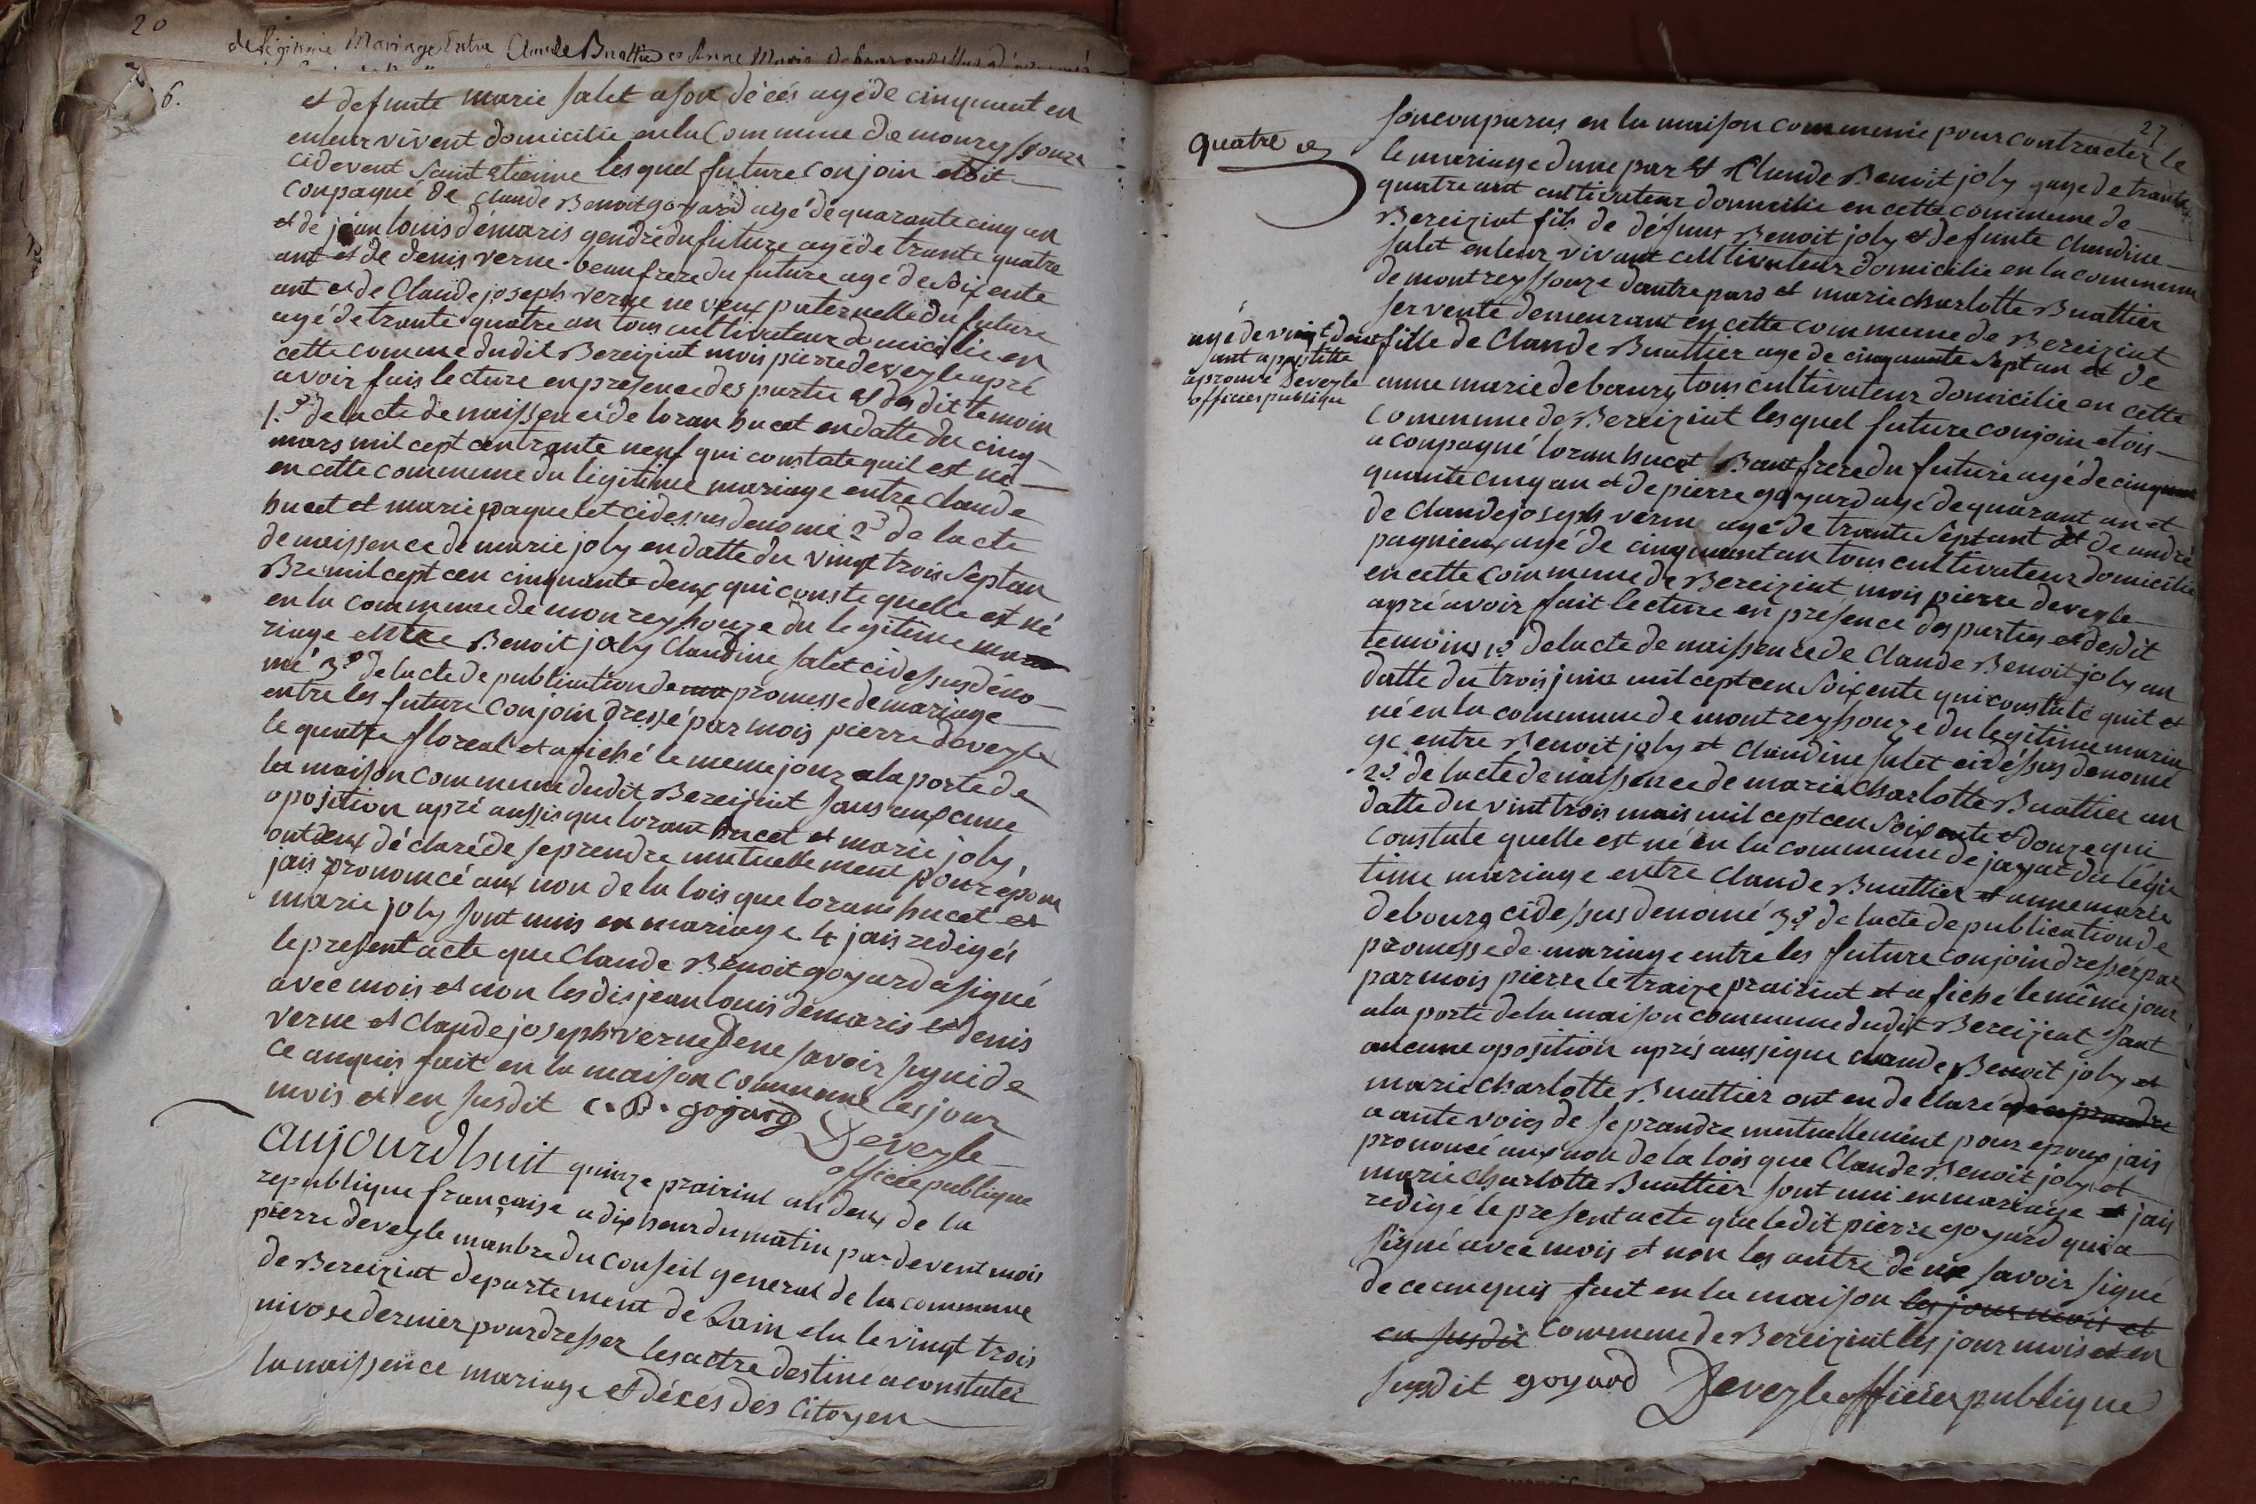 20
de légitime Mariage Entre Claude Buattier et Anne Marie
6.
et defunte marie salet a son décés agé de cinquant en
en leur vivent domicilie en la Commune de monreyssouze
cidevent saint etienne les quel future conjoin etoit
conpagné de claude Benoit goyard agé de quarante cinq an
et de jean louis démaris gendre du future agé de trante quatre
ant et de denis verne beaufrere du future age de soixente
ant et de Claude joseph verne ne veux paternelle du future
agé de trante quatre an tous cultivateur domicilie en
cette comme dudit Bereiziat mois pierre deveyle apré
avoir fais lecture en presence des partie et des dit temoin
1.º de lacte de naissence de loran hucet en datte du cinq
mars mil cept cen trante neuf qui constate quil est né
en cette commune du légitime mariage entre claude
hucet et marie paquelet cidessus denomé 2º de lacte
de naissence de marie joly en datte du vingt trois Septan
Bre mil cept cen cinquante deux qui conste quelle est né
en la commune de monreyssouze du legitime ma
riage entre Benoit joly Claudine salet cidessus déno
mé 3º de lacte de publication de promesse de mariage
entre les future conjoin dressé par mois pierre deveyle
le quatre floreal et afiché le meme jour a la porte de
la maison commune dudit Bereiziat sans auxcune
oposition apré aussi que loran hucet et marie joly
ont eux déclaré de se prendre mutuellement pour époux
jais prononcé aux non de la lois que loran hucet et
marie joly sont unis en mariage & jais redigés
le present acte que Claude Benoit goyard a signé
avec mois et non les dis jean louis démaris et denis
verne et Claude joseph verne de ne savoir signi de
ce anquis fait en la maison commune les jour
mois et en susdit C. B. goyard
Deveyle
officié publique
aujourdhuit quinze prairial an deux de la
republique française a dix heur du matin par devent mois
pierre deveyle manbre du conseil general de la commune
de Bereiziat departement de Lain elu le vingt trois
nivose dernier pour dresser les actre destiné a constater
la naissence mariage et déces des Citoyen
27
quatre
son conparus en la maison commune pour contracter le
le mariage dune par et Claude Benoit joly gage de trante
quatre ant cultivateur domicilie en cette commune de
Bereiziat fils de défunt Benoit joly et defunte claudine
salet en leur vivant celtivateur domicilie en la commune
de montreyssouze dautre pard et marie charlotte Buattier
servente demeurant en cette commune de Bereiziat
agé de vingt deux
ant apostille
aprouvé Deveyle
officier publique
fille de Claude Buattier age de cinquante sept an et de
anne marie debourg tous cultivateur domicilie en cette
commune de Bereiziat les quel future conjoin etois
a conpagné loran hucet Beautfrere du future agé de cinquant
quante cinq an et de pierre goyard agé de quarant an et
de claude joseph verne agé de trante Sept ant et de andré
pagnieux agé de cinquant an tous cultivateur domicilie
en cette commune de Bereiziat mois pierre deveyle
apré avoir fait lecture en presence des parties et des dit
temoins 1º de lacte de naissence de Claude Benoit joly an
datte du trois juin mil cept cen soixente qui constate quit et
né en la commune de montreyssouze du legitime maria
ge entre Benoit joly et claudine salet cidéssus denomé
2º de lacte de naissence de marie charlotte Buattier an
datte du vint trois mais mil cept cen soixente et douze qui
constate quelle est né en la commune de jayat du legi
time mariage entre claude Buattier et anne marie
debourg cidessus denomé 3º de lacte de publication de
promesse de mariage entre les future conjoin dressér par
par mois pierre le traize prairiat et afiché le même jour
a la porte de la maison commune dudit Bereiziat sant
aucune oposition aprés aussi que claude Benoit joly et
marie charlotte Buattier ont en declaré
a aute voies de se prandre mutuellement pour epoux jais
prononcé aux non de la lois que Claude Benoit joly et
marie charlotte Buattier sont uni en mariage et jais
redigé le present acte que ledit pierre goyard qui a
signé avec mois et non les autre de ne savoir signé
de ce anquis fait en la maison les jour mois et
en susdit Commune de Bereiziat les jour mois et en
susdit goyard Deveyle officier publique